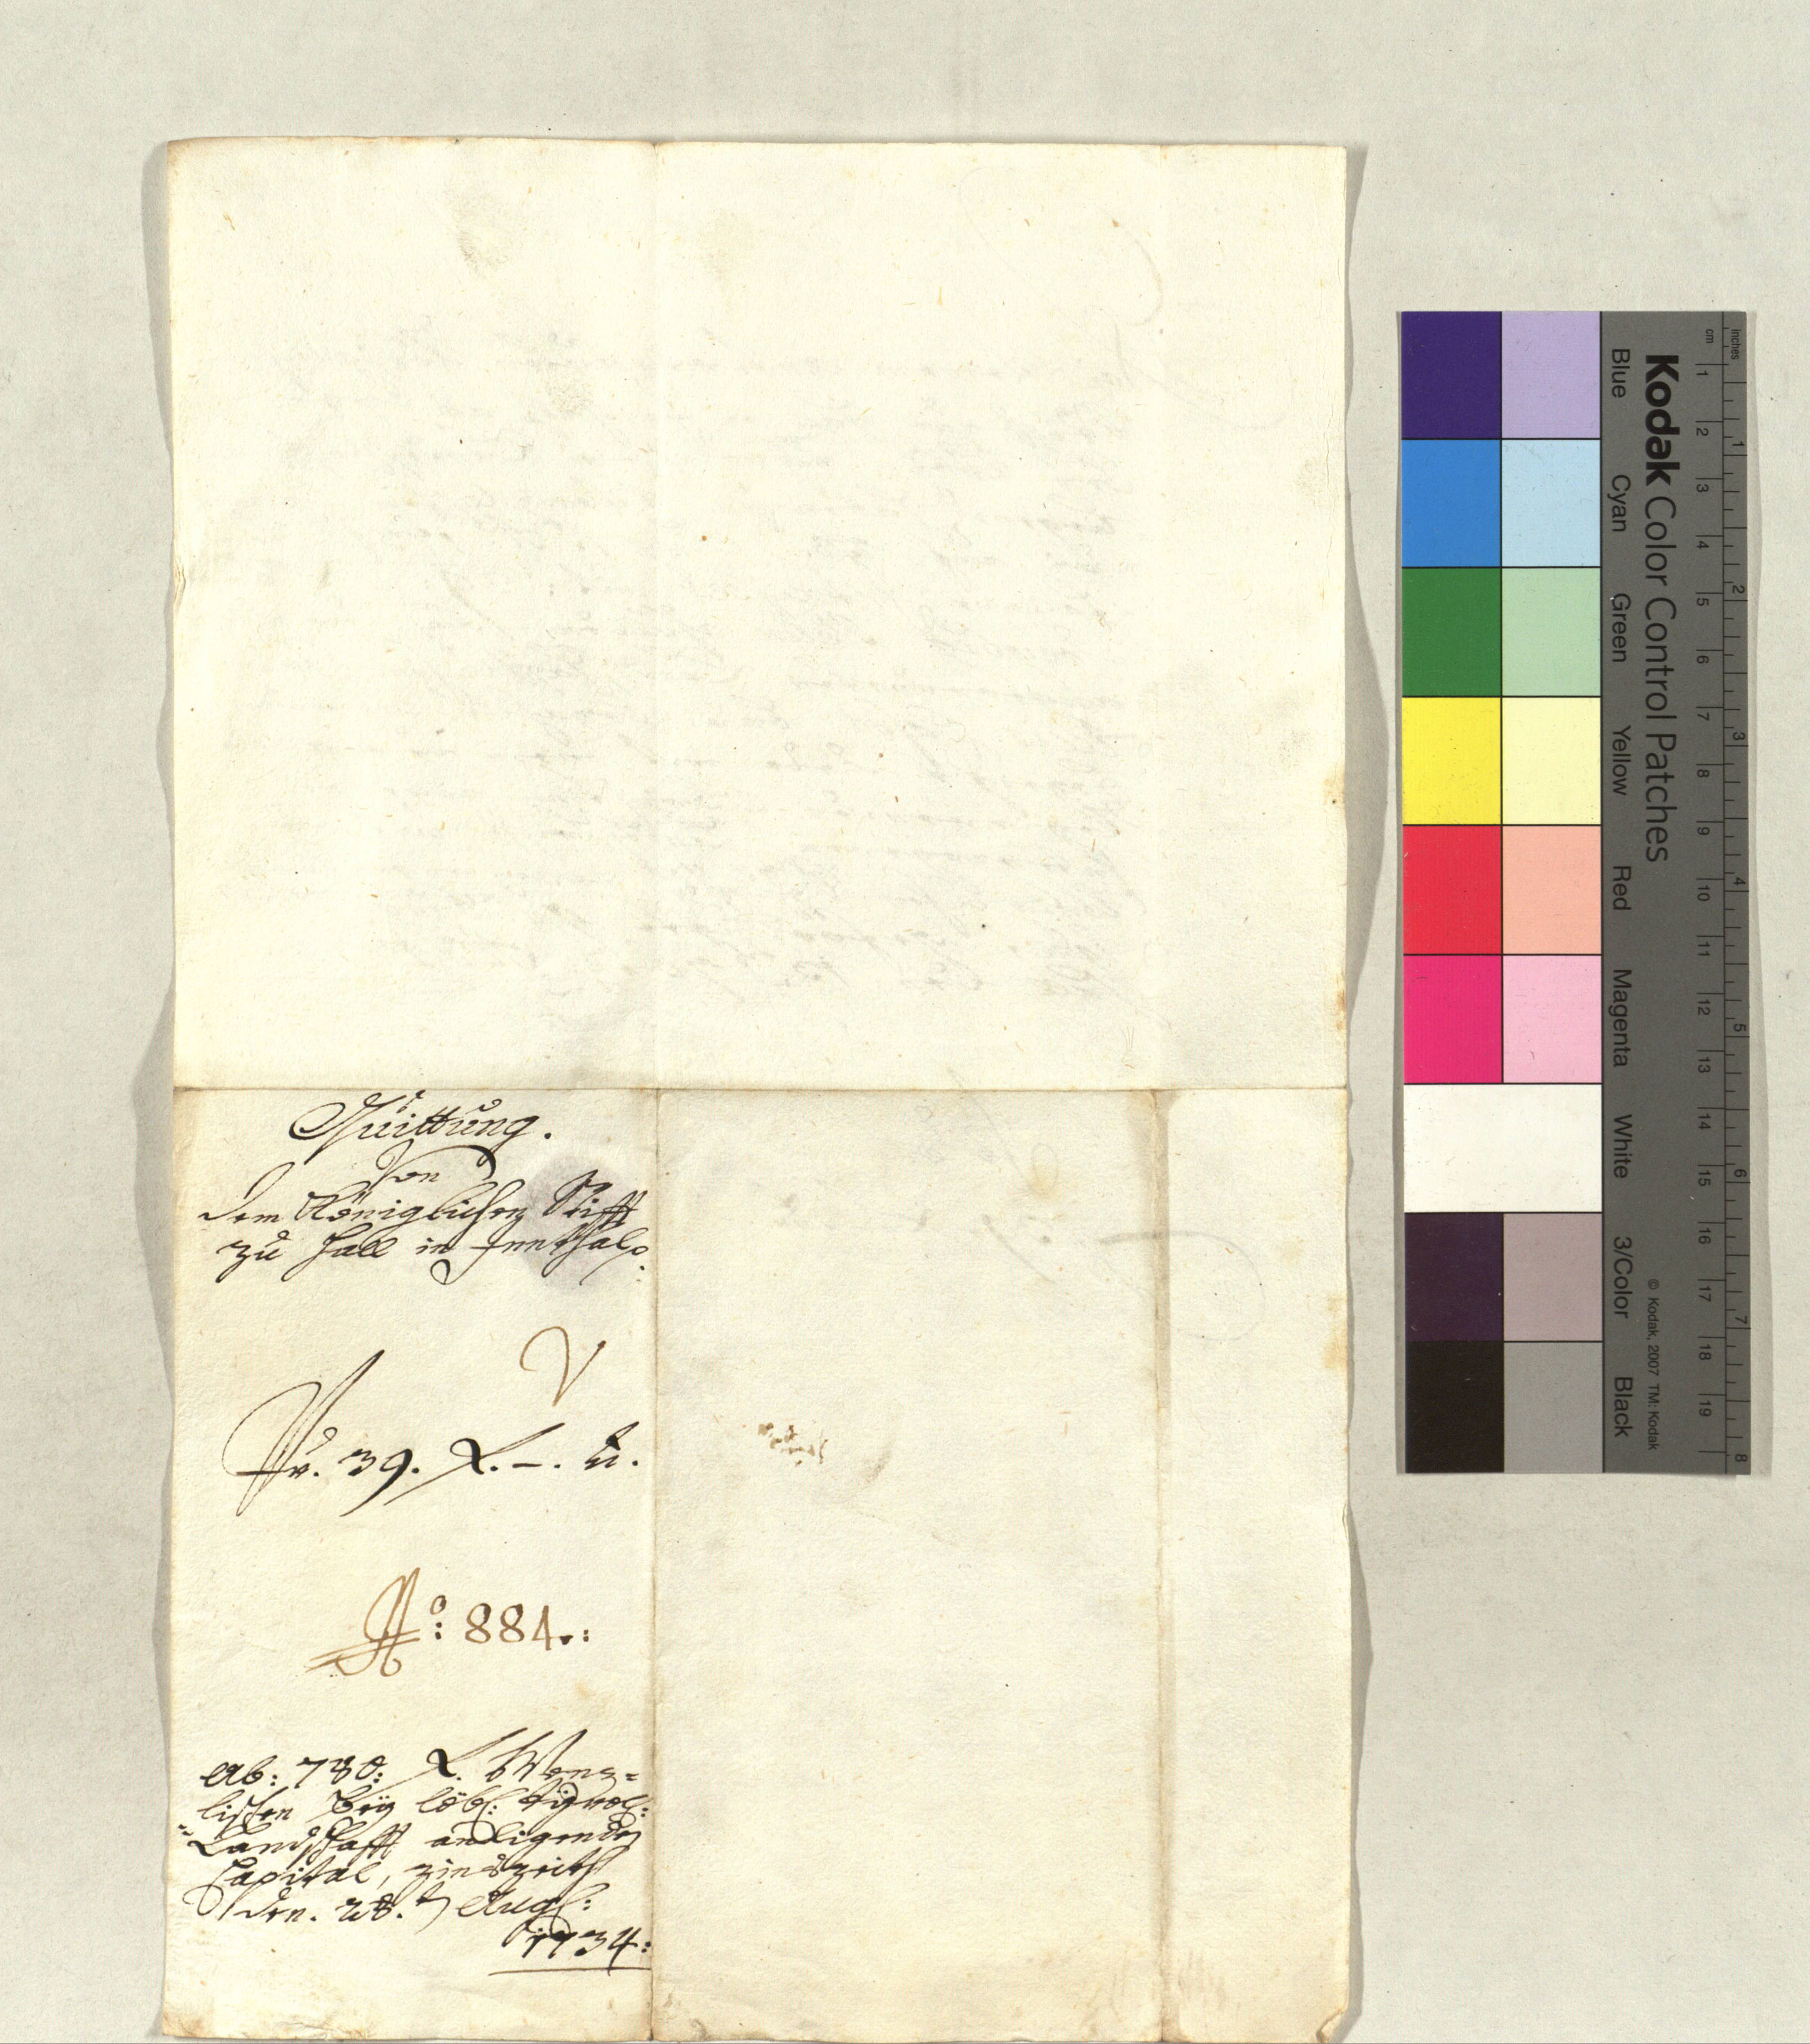 Quittung.
Von
dem Königlichen Stifft
zu Hall in Innthal.
V
Pr. 39. f. -. kr.
No: 884.:
Ab: 780: f.
lischen bey löbl: Tyrol:
=Landschafft anligenden
Capital, zinszeith
den. 28.t Aug:
1734:
Kodak Color Control Patches
Blue Cyan Green Yellow Red Magenta White 3/Color Black
© Kodak, 2007 TM: Kodak
inches 1 2 3 4 5 6 7 8
cm 1 2 3 4 5 6 7 8 9 10 11 12 13 14 15 16 17 18 19